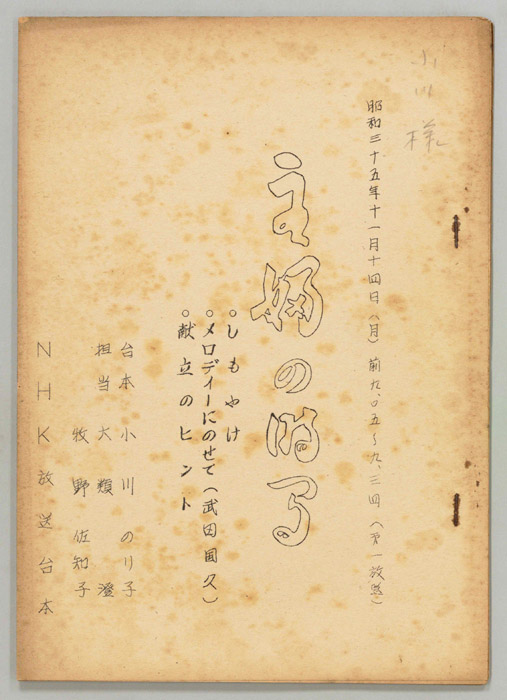 小川様
昭和三十五年十一月十四日(月)前九、〇五~九、三四(第一放送)
主婦の時間
○しもやけ
○メロディーにのせて(武田国久)
○献立のヒント
台本 小川のり子
担当 大類 澄
牧野佐知子
NHK放送台本